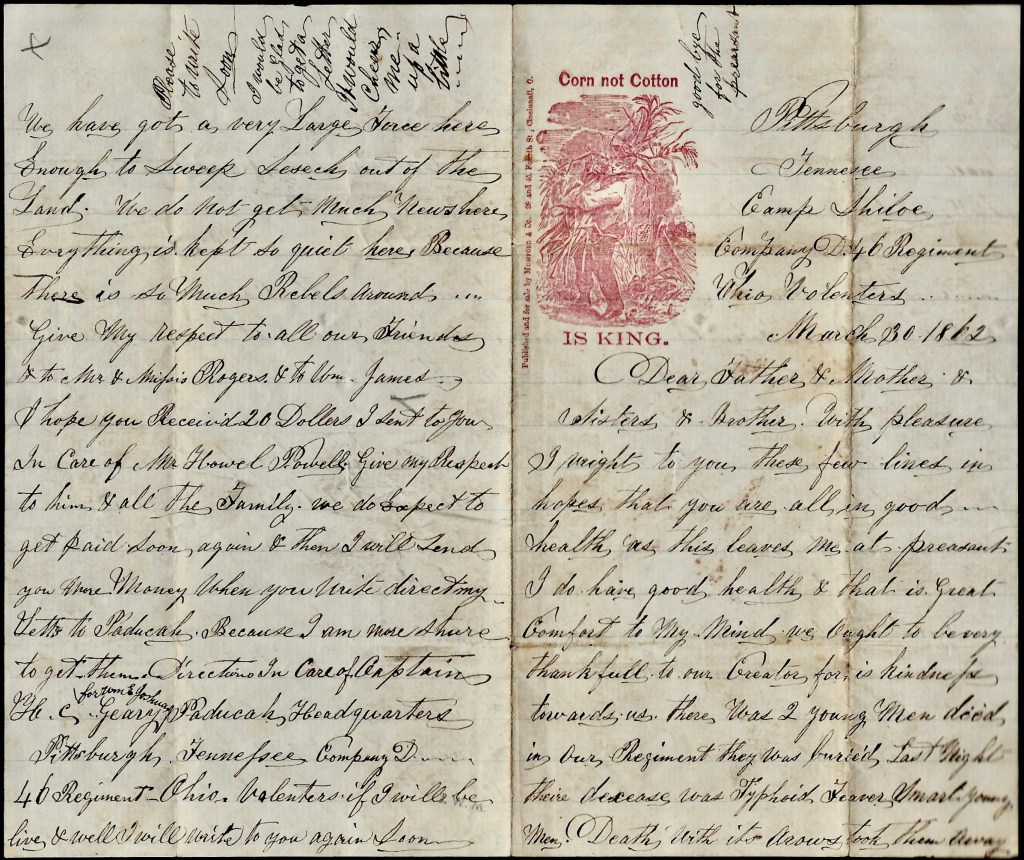 Please
to write
Soon
I would
be glad
to get a
letter
It would
Cheer
me
up a
little
We have got a very Large Force here
Enough to Sweep Sesech out of the
Land. We do Not get Much News here
Everything is kept so quiet here Because
There is so Much Rebels around
Give My respect to all our Friends
& to Mr & Missis Rogers & to Wm. James.
I hope you Receivid 20 Dollers I sent to you
In Care of Mr Howel Powell Give my Respect
to him & all The Family. we do Expect to
get paid soon again & then I will Send
you More Money When you Write direct my
Letts to Paducah. Because I am more shure
to get them. Direction In Care of Captain
for Wm E Joshua
C. Geary Paducah Headquarters
Pittsburgh. Tennessee Company D
46 Regiment Ohio. Volenters if I will be
live & well I will write to you again Soon
good bye
for the
preasant
Corn not Cotton
IS KING.
Published and for sale by Mumford & Co. 38 and 40, Fourth St., Cincinnati, O.
Pittsburgh
Tennesee
Camp Shiloe
Company D. 46 Regiment
Ohio Volenters
March 30 1862
Dear Father & Mother &
Sisters & Brother. With pleasure
I wright to you these few lines in
hopes that you are all in good
health as this leaves me at preasant
I do have good health & that is Great
Comfort to My Mind we Ought to be very
thankfull to our Creator for is kindness
towards us. there Was 2 young Men dieed
in our Regiment they was buried Last Night
theire decease was Typhoid Feaver Smart young
Men. Death With its arows took them away